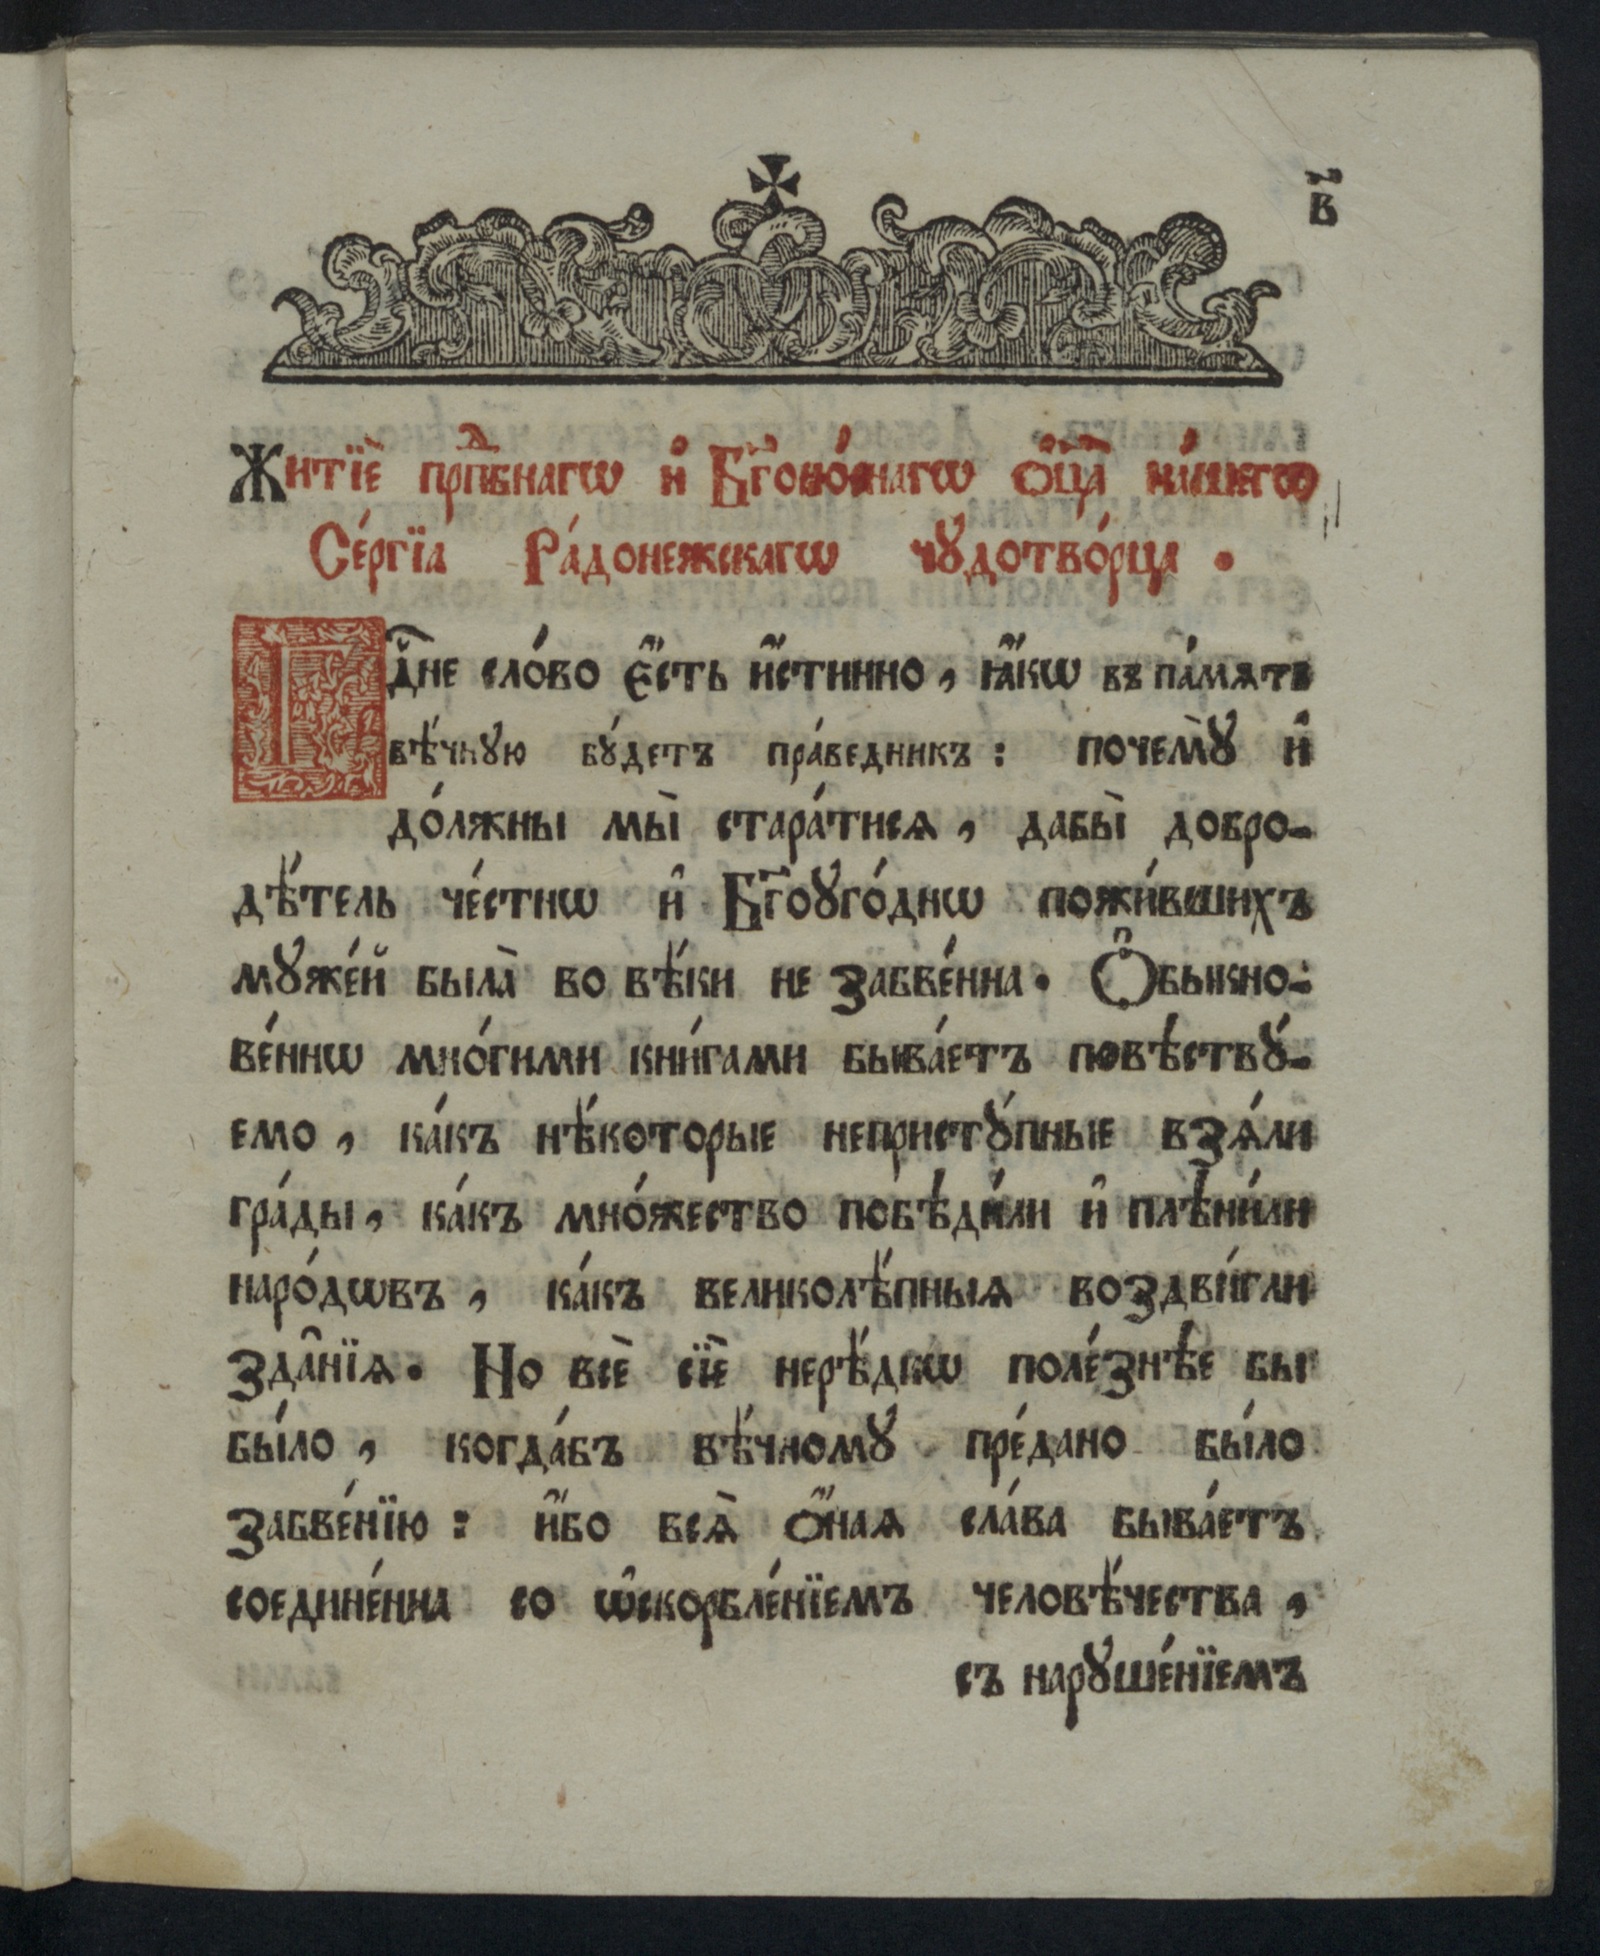 в҃
Житїѐ прпⷣбнагѡ и҆ Бг҃оно́снагѡ ѻ҆ц҃а̀ на́шегѡ
Се́ргїа Ра́донежскагѡ чꙋдотво́рца .
Гдⷭ҇не сло́во є҆́сть и҆́стинно , ꙗ҆́кѡ въ па́мѧть
вѣ́чнꙋю бꙋ́детъ пра́ведникъ : почемꙋ̀ и҆
до́лжны мы̀ стара́тисѧ , дабы̀ добро-
дѣ́тель че́стнѡ и҆ Бг҃оꙋго́днѡ пожи́вшихъ
мꙋже́й была̀ во вѣ́ки не забве́нна . Ѻ҆быкно-
ве́ннѡ мно́гими кни́гами быва́етъ повѣствꙋ́-
емо , ка́къ нѣ́которые непристꙋ́пные взѧ́ли
гра́ды , ка́къ мно́жество побѣди́ли и҆ плѣни́ли
наро́дѡвъ , ка́къ великолѣ́пныѧ воздви́гли
зда̑нїѧ . Но всѐ сїѐ нерѣ́дкѡ поле́знѣе бы
бы́ло , когда́бъ вѣ́чномꙋ пре́дано бы́ло
забве́нїю : и҆́бо всѧ̀ ѻ҆́наѧ сла́ва быва́етъ
соедине́нна со ѡ҆скорбле́нїемъ человѣ́чества ,
съ нарꙋше́нїемъ